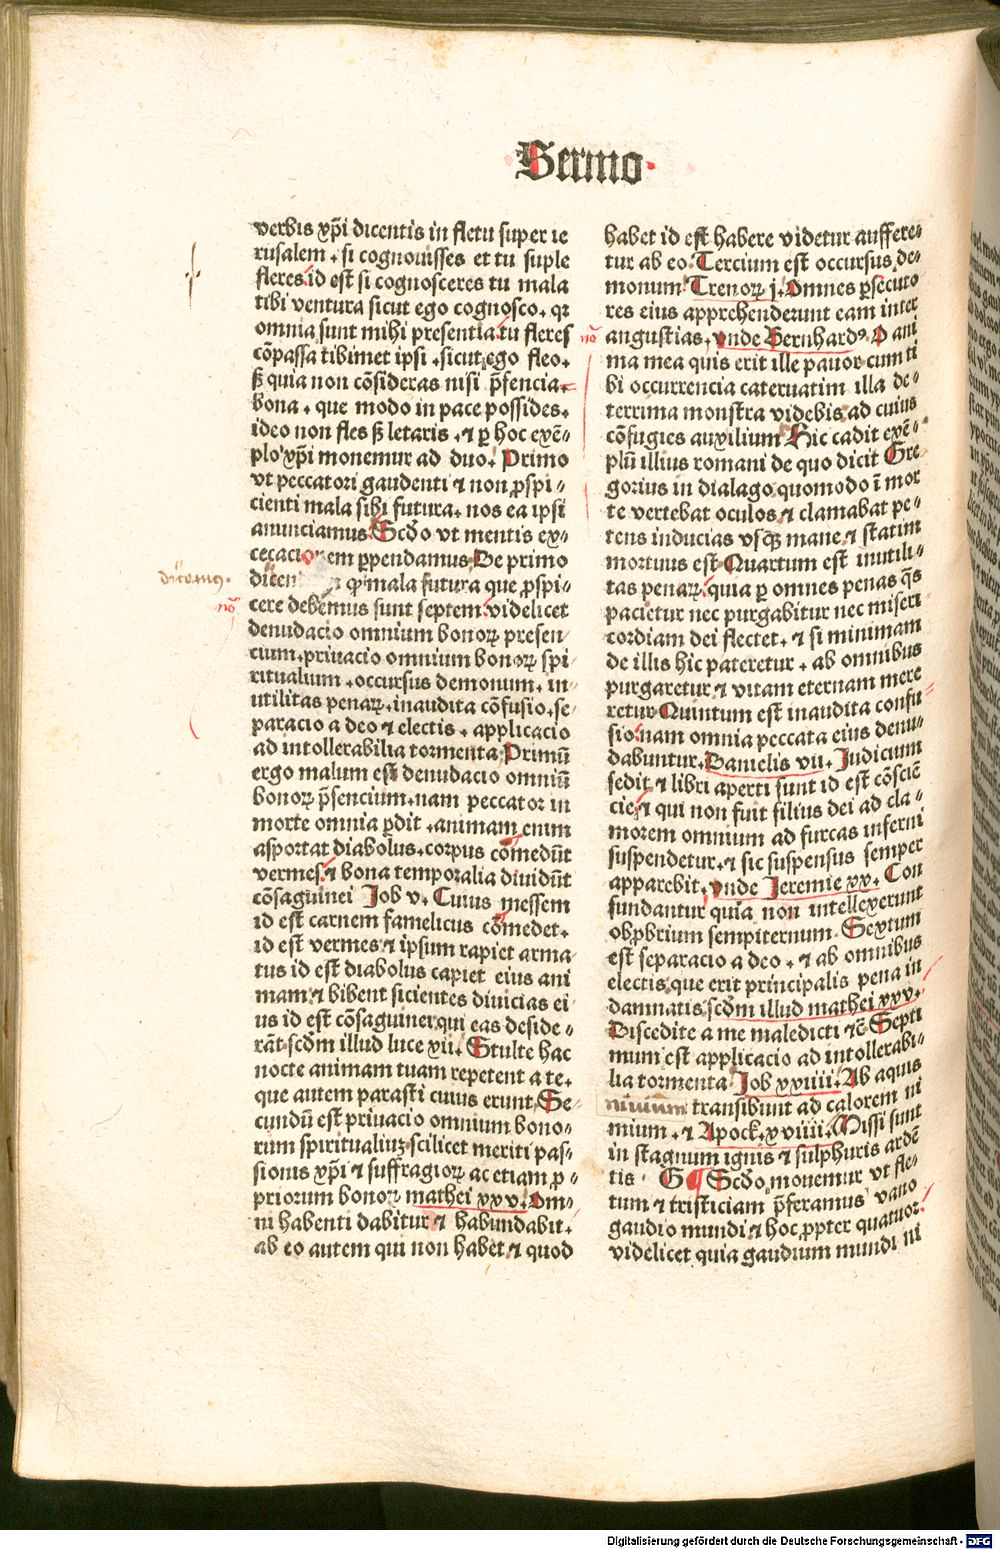 Sermo
verbis xp̄i dicentis in fletu super ie
rusalem . si cognouisses et tu suple
fleres id est si cognosceres tu mala
tibi ventura sicut ego cognosco . qꝛ
omnia sunt mihi presentia tu fleres
cōpassa tibimet ipsi . sicut ego fleo .
ẜ quia non cōsideras nisi p̄sencia
bona . que modo in pace possides .
ideo non fles ẜ letaris . ⁊ ꝑ hoc exē⸗
plo xp̄i monemur ad duo . Primo
vt peccatori gaudenti ⁊ non ꝓspi⸗
cienti mala sibi futura . nos ea ipsi
anunciamus Scd̄o vt mentis ex⸗
cecacionem ꝑpendamus De primo
dicen ꝙ mala futura que ꝓspi⸗
cere debemus sunt septem videlicet
denudacio omnium bonoꝝ presen⸗
cium . priuacio omnium bonoꝝ spi⸗
ritualium . occursus demonum . in⸗
utilitas penaꝝ . inaudita cōfusio . se⸗
paracio a deo ⁊ electis . applicacio
ad intollerabilia tormenta Primū
ergo malum est denudacio omniū
bonoꝝ p̄sencium . nam peccator in
morte omnia ꝑdit . animam enim
asportat diabolus . corpus cōmedūt
vermes ⁊ bona temporalia diuidūt
cōsaguinei Job v . Cuius messem
id est carnem famelicus cōmedet .
id est vermes ⁊ ipsum rapiet arma
tus id est diabolus capiet eius ani
mam ⁊ bibent sicientes diuicias ei⸗
us id est cōsaguinei qui eas deside⸗
rāt scd̄m illud luce xii . Stulte hac
nocte animam tuam repetent a te .
que autem parasti cuius erunt Se⸗
cundū est priuacio omnium bono⸗
rum spiritualiuꝫ scilicet meriti pas⸗
sionis xp̄i ⁊ suffragioꝝ ac etiam ꝓ⸗
priorum bonoꝝ mathei xxv . Om⸗
ni habenti dabitur ⁊ habundabit .
ab eo autem qui non habet ⁊ quod
habet id est habere videtur auffere⸗
tur ab eo Tercium est occursus de⸗
monum Trenoꝝ j . Omnes ꝑsecuto
res eius apprehenderunt eam inter
angustias . vnde Bernhardꝰ O ani
ma mea quis erit ille pauor cum ti
bi occurrencia cateruatim illa de⸗
terrima monstra videbis ad cuius
cōfugies auxilium Hic cadit exē⸗
plū illius romani de quo dicit Gre⸗
gorius in dialago quomodo ī mor
te vertebat oculos ⁊ clamabat pe⸗
tens inducias vsqꝫ mane ⁊ statim
mortuus est Quartum est inutili⸗
tas penaꝝ quia ꝑ omnes penas q̄s
pacietur nec purgabitur nec miseri
cordiam dei flectet . ⁊ si minimam
de illis hic pateretur . ab omnibus
purgaretur ⁊ vitam eternam mere
retur Quintum est inaudita confu⸗
sio nam omnia peccata eius denu⸗
dabuntur . Danielis vii . Judicium
sedit ⁊ libri aperti sunt id est cōsciē⸗
cie ⁊ qui non fuit filius dei ad cla⸗
morem omnium ad furcas inferni
suspendetur . ⁊ sic suspensus semper
apparebit . vnde Jeremie xx . Con
fundantur quia non intellexerunt
obꝓbrium sempiternum Sextum
est separacio a deo . ⁊ ab omnibus
electis que erit principalis pena in
damnatis scd̄m illud mathei xxv .
Discedite a me maledicti ⁊c̄ Septi
mum est applicacio ad intollerabi⸗
lia tormenta Job xxiiii . Ab aquis
niuium transibunt ad calorem ni
mium . ⁊ Apock . xviiii . Missi sunt
in stagnum ignis ⁊ sulphuris ardē
tis G Scd̄o monemur vt fle⸗
tum ⁊ tristiciam p̄feramus vano
gaudio mundi ⁊ hoc ꝓpter quatuor
videlicet quia gaudium mundi ni
dicamus .
no
no
Digitalisierung gefördert durch die Deutsche Forschungsgemeinschaft - DFG